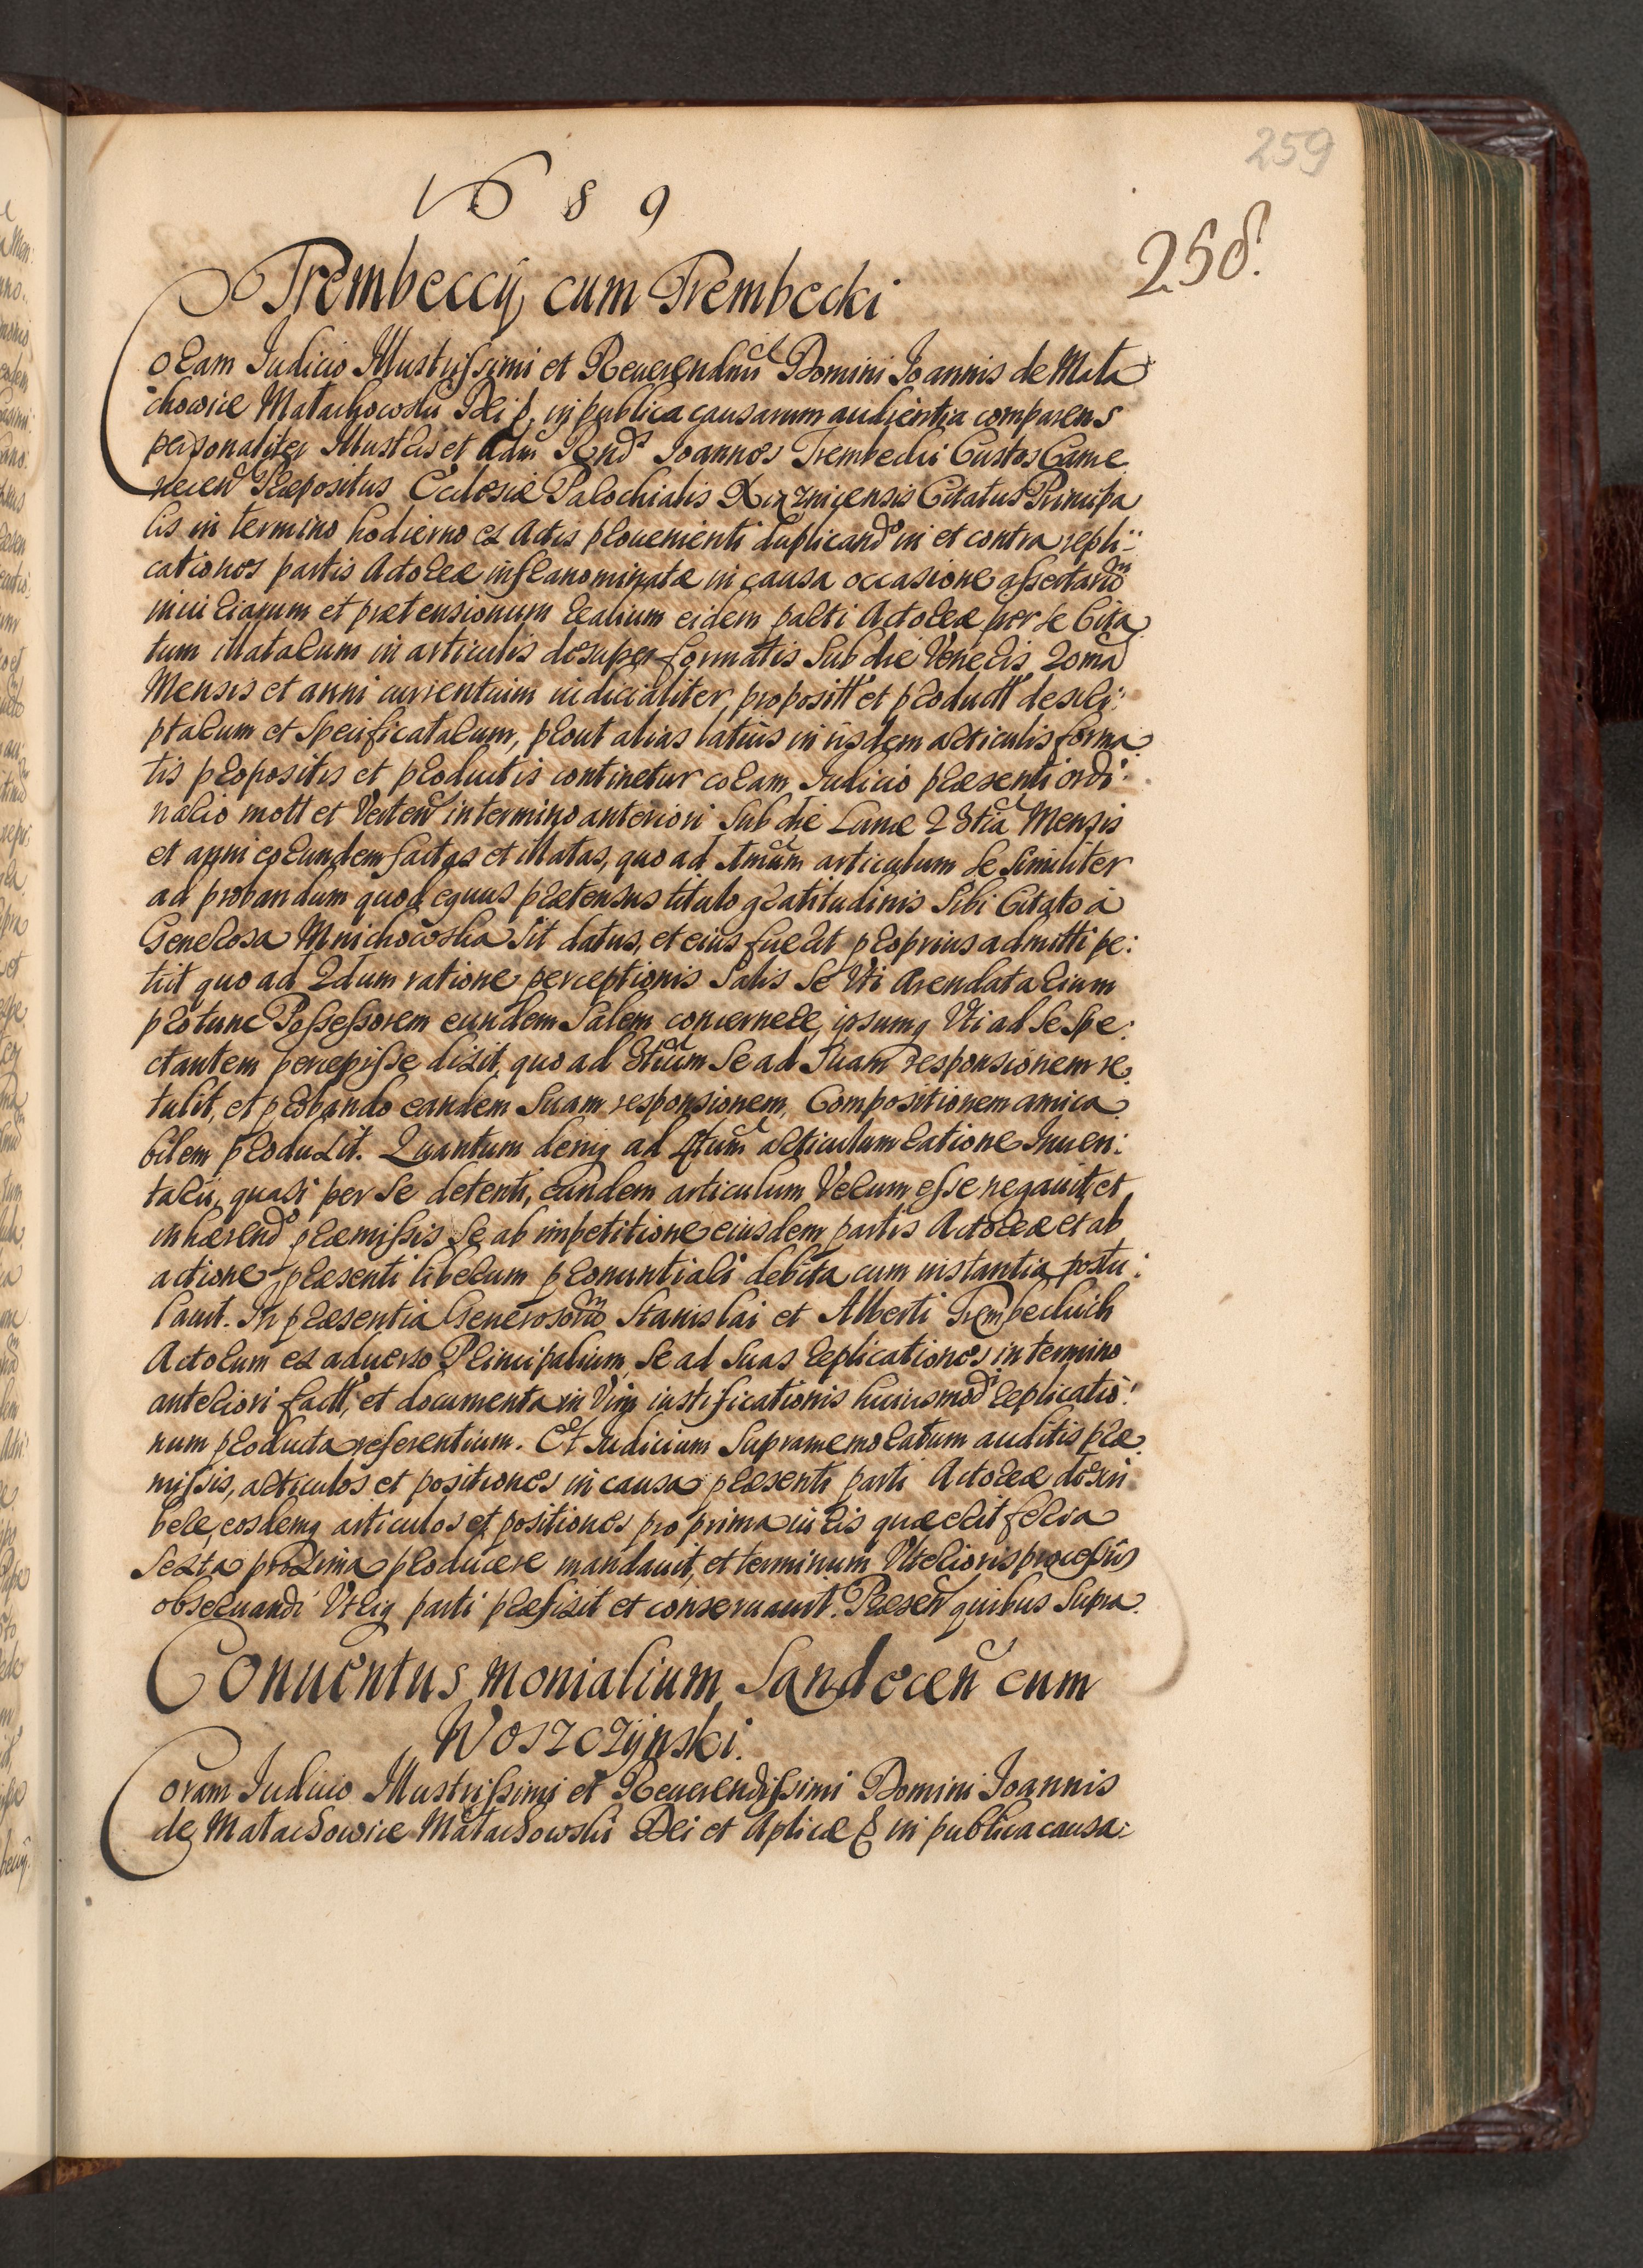 259
1689
258.
Trembeccÿ cum Trembecki
Coram Iudicio Illustrissimi et Reuerendmi Domini Ioannis de Mała
chowice Małachowski Dei p. in publica causarum audientia comparens
personaliter Illustris et Adm Rnds Ioannes Trembecki Custos Came
necen Præpositus Ecclesiæ Parochialis Citatus Principa
lis in termino hodierno ex Actis prouenienti duplicando in et contra repli:
cationes partis Actoreæ infranominatæ in causa occasione assertarum
iniuriarum et prætensionum realium eidem parti Actoreæ per se Cita
tum illatarum in articulis desuper formatis Sub die Veneris 20ma
Mensis et anni currentium iudicialiter propositt et productt descri:
ptarum et Specificatarum, prout alias latius in iisdem articulis forma
tis propositis et productis continetur coram Iudicio præsenti ordi:
nario mott et Verten in termino anteriori Sub die Lunæ 23tia Mensis
et anni eorundem factas et illatas, quo ad 1mum articulum Se Similiter
ad probandum quod equus prætensus titulo gratitudinis Sibi Citato à
Generosa Mnichowska Sit datus, et eius fuerit proprius admitti pe:
tiit quo ad 2dum ratione perceptionis Salis Se Vti Arendatarium
protunc Possessorem eundem Salem concernere, ipsumq Vti ad Se Spe:
ctantem percepisse dixit, quo ad 3tium Se ad Suam responsionem re
tulit, et probando eandem Suam responsionem, Compositionem amica
bilem produxit. Quantum deniq ad 4tum articulum ratione Inuen:
tarii, quasi per Se detenti, eundem articulum Verum esse negauit, et
inhærendo præmissis Se ab impetitione eiusdem partis Actoreæ et ab
actione præsenti liberum pronuntiari debita cum instantia postu:
lauit. In præsentia Generosorum Stanislai et Alberti Trembeckich
Actorum ex aduerso Principalium, Se ad Suas replicationes in termino
anteriori factt, et documenta in Vim iustificationis huiusmodi replicatio:
num producta referentium. Et Iudicium Supramemoratum auditis præ
missis, articulos et positiones in causa præsenti parti Actoreæ describere, eosdemq articulos et positiones pro prima iuris quæ erit feria
Sexta proxima producere mandauit, et terminum Vlterioris processus
obseruandi Vtriq parti præfixit et conseruauit. Præsen quibus Supra.
Conuentus monialium Sandecen cum
Woszczÿnski.
Coram Iudicio Illustrissimi et Reuerendissimi Domini Ioannis
de Małachowice Małachowski Dei et Aplicæ & in publica causa: